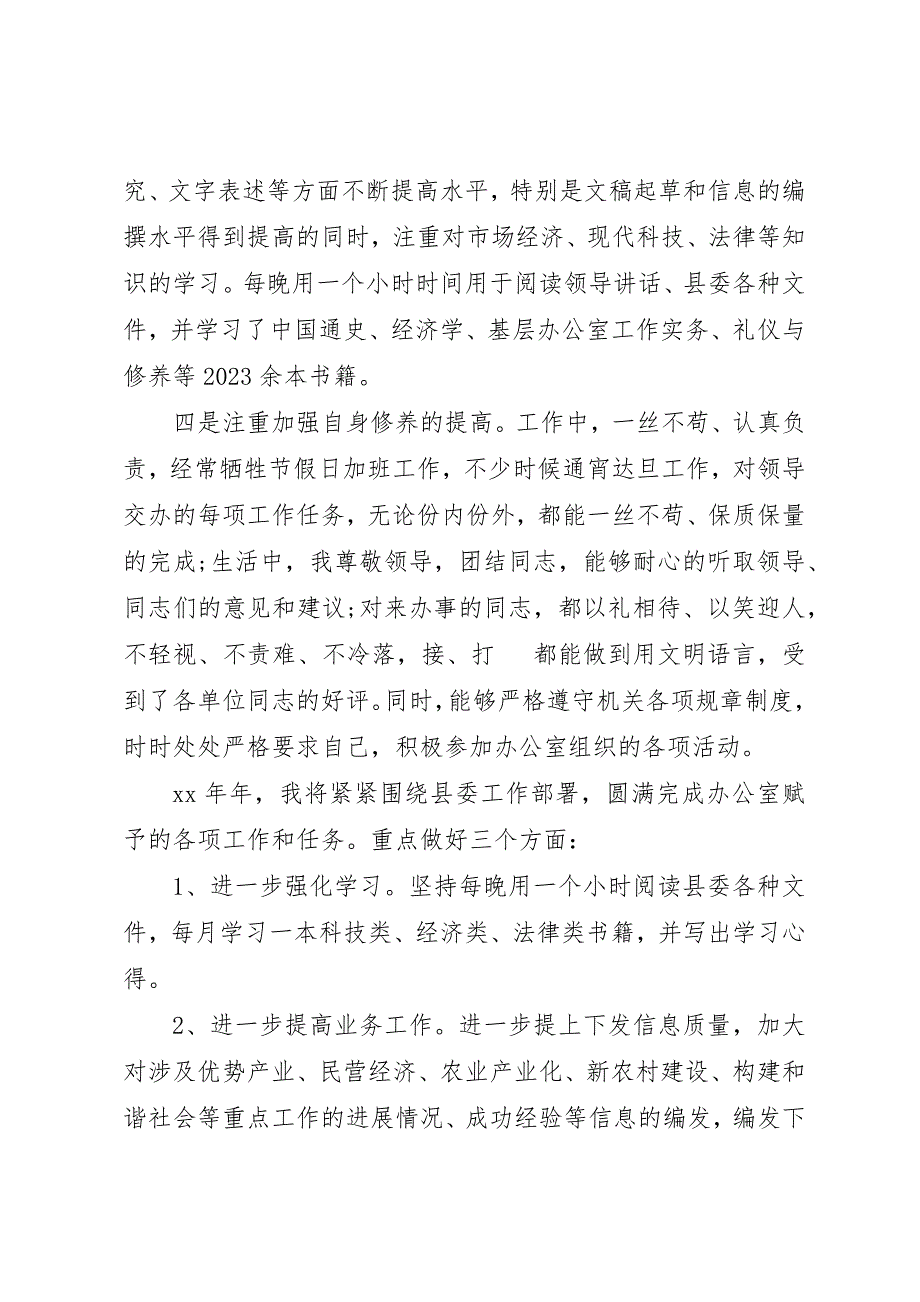 究、文字表述等方面不断提高水平，特别是文稿起草和信息的编
撰水平得到提高的同时，注重对市场经济、现代科技、法律等知
识的学习。每晚用一个小时时间用于阅读领导讲话、县委各种文
件，并学习了中国通史、经济学、基层办公室工作实务、礼仪与
修养等 2023 余本书籍。
四是注重加强自身修养的提高。工作中，一丝不苟、认真负
责，经常牺牲节假日加班工作，不少时候通宵达旦工作，对领导
交办的每项工作任务，无论份内份外，都能一丝不苟、保质保量
的完成;生活中，我尊敬领导，团结同志，能够耐心的听取领导、
同志们的意见和建议;对来办事的同志，都以礼相待、以笑迎人，
不轻视、不责难、不冷落，接、打　都能做到用文明语言，受
到了各单位同志的好评。同时，能够严格遵守机关各项规章制度，
时时处处严格要求自己，积极参加办公室组织的各项活动。
xx 年年，我将紧紧围绕县委工作部署，圆满完成办公室赋
予的各项工作和任务。重点做好三个方面：
1、进一步强化学习。坚持每晚用一个小时阅读县委各种文
件，每月学习一本科技类、经济类、法律类书籍，并写出学习心
得。
2、进一步提高业务工作。进一步提上下发信息质量，加大
对涉及优势产业、民营经济、农业产业化、新农村建设、构建和
谐社会等重点工作的进展情况、成功经验等信息的编发，编发下